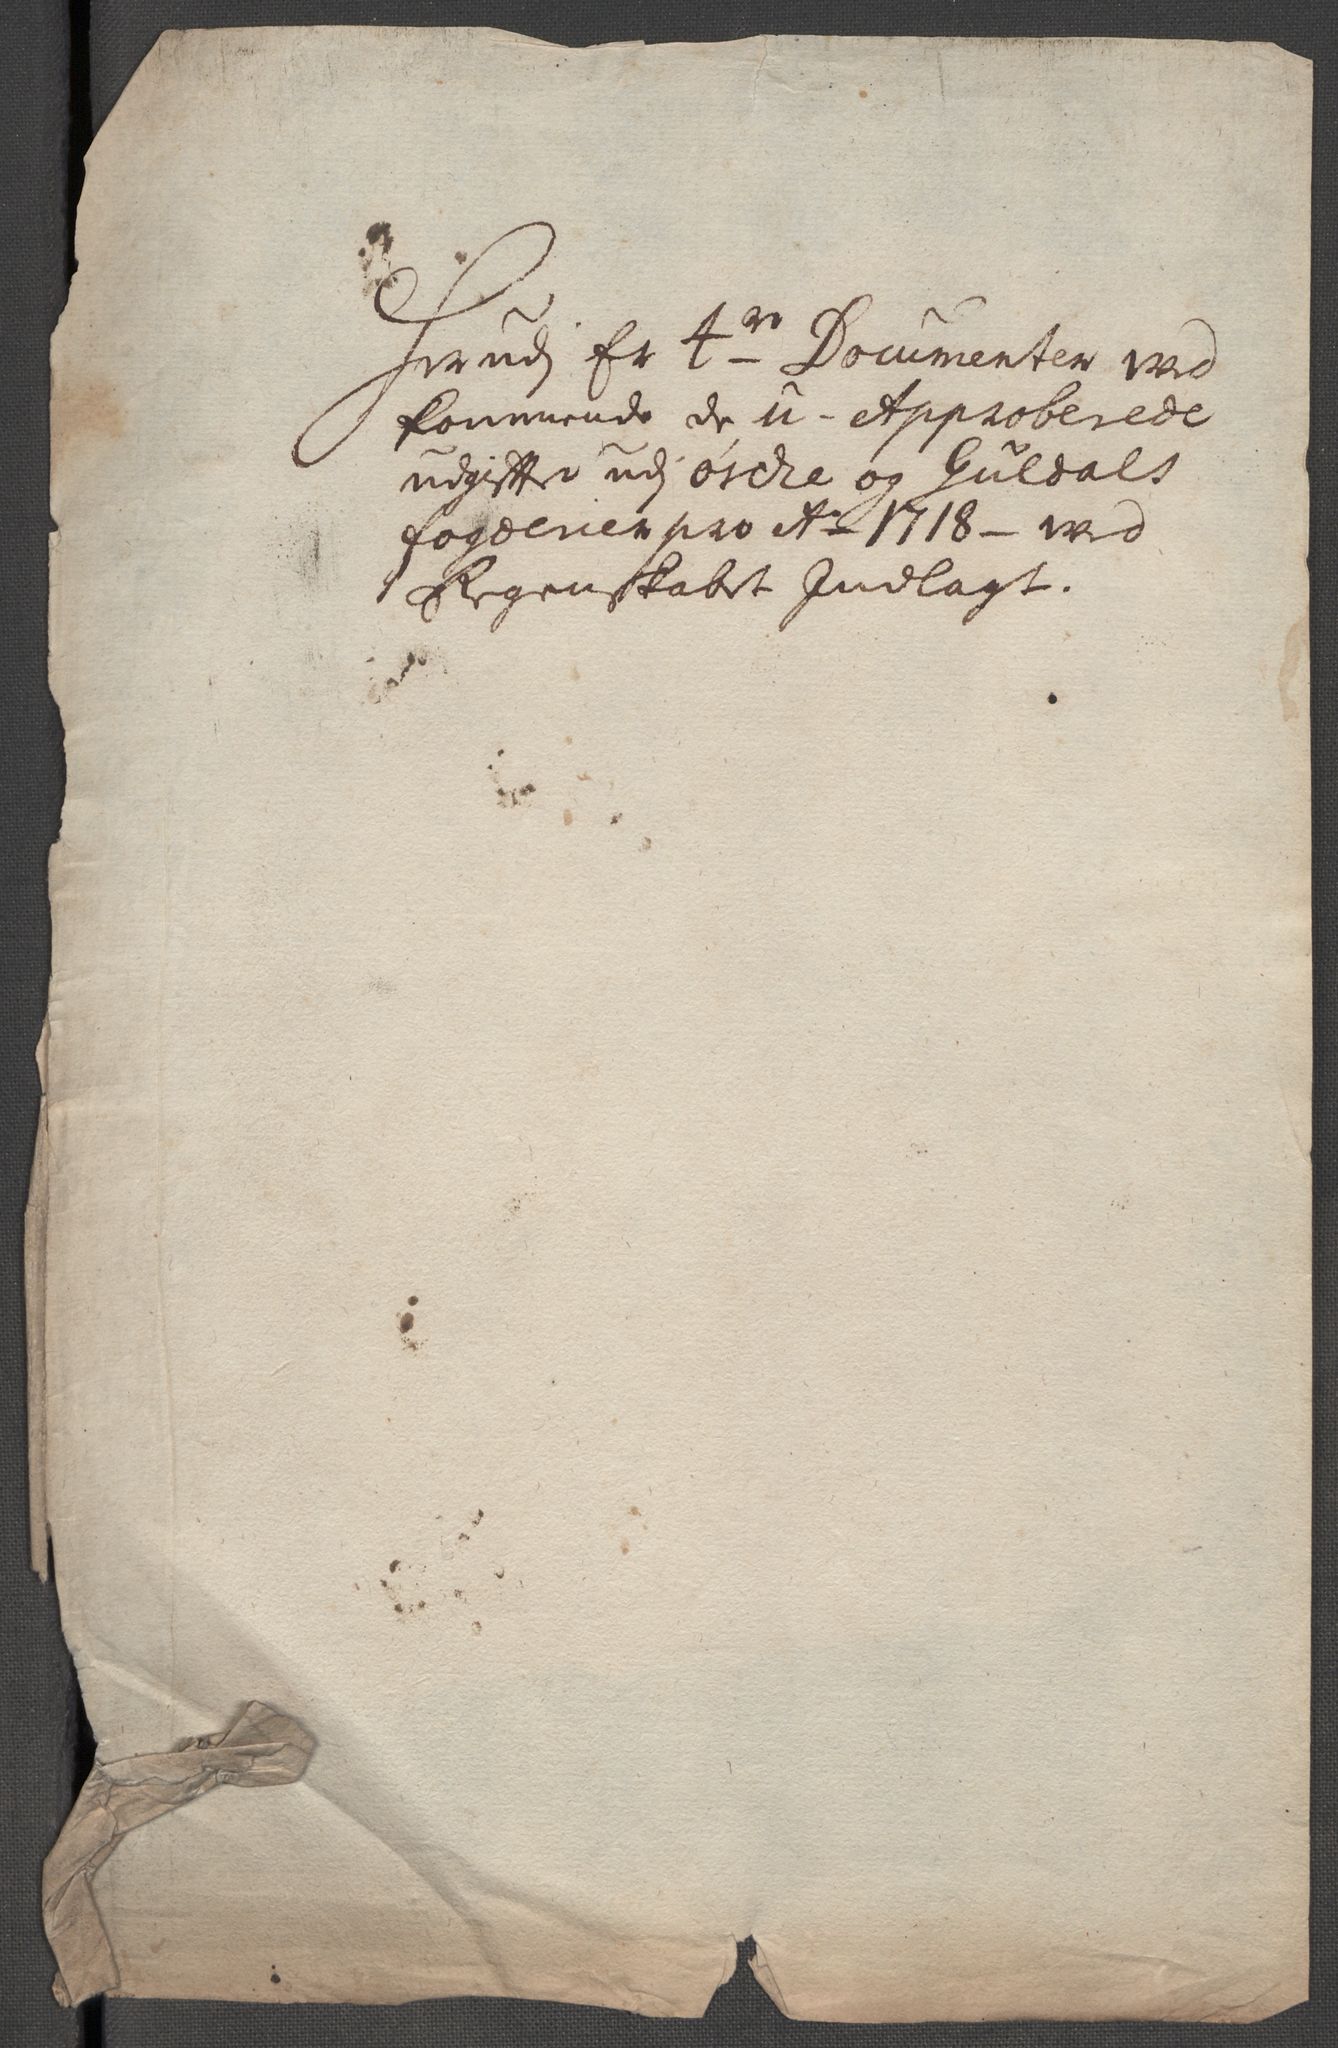 Herudj Er 4re Documenter ved
kommende de u-Approberede
udgifter udj ørche og Guldals
fogderier pro Ao 1718 – ved
Regenskabet Indlagt.